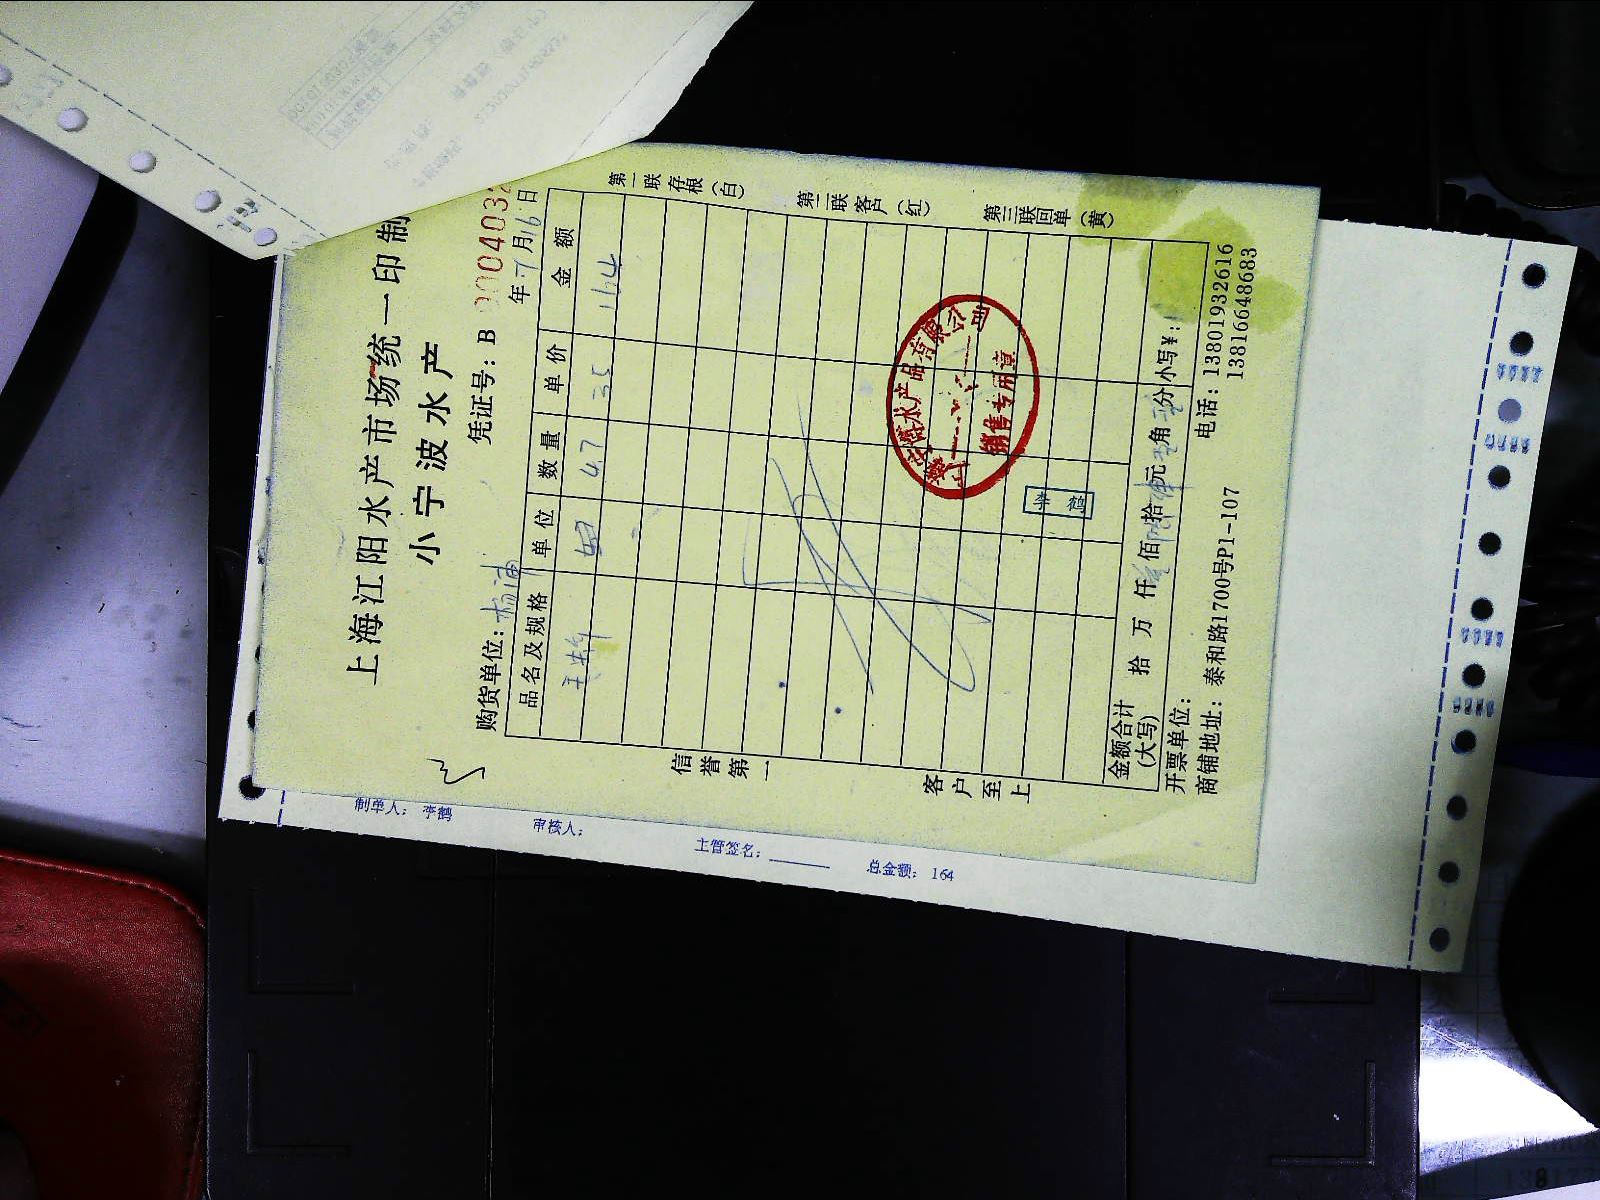 上海江阳水产市场统一印制
小宁波水产
凭证号：B 000403
购货单位：杨浦 年 7月16日
品名及规格 单位 数量 单价 金额
4.7 35 164
信誉第一
客户至上
第一联存根（白）
第二联客户（红）
第三联回单（黄）
水产品有限公司
销售专用章
李鹤
金额合计（大写） 拾 万 仟 佰 拾 元 角 分 小写¥：
开票单位：
电话：13801932616
13816648683
商铺地址：泰和路1700号P1-107
制单人：李鹤
审核人：
主管签名：
总金额：164